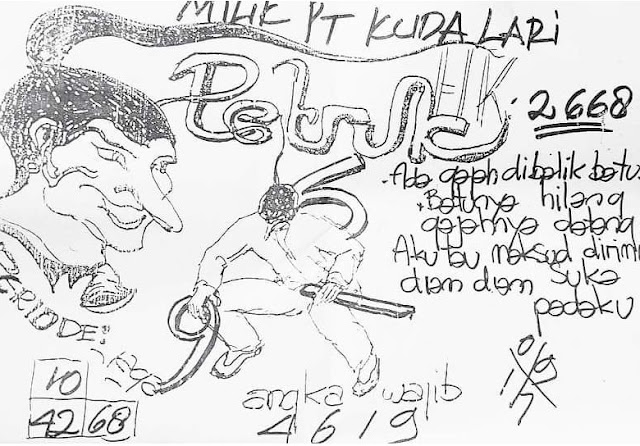 MILIK PT KUDA LARI
Petruk
2668
Ada gajah dibalik batu
Batunya hilang
gajahnya datang
Aku tau maksud dirimu
diam diam suka
padaku
5
9
PERIODE:
10
42 68
angka wajib
4 6 1 9